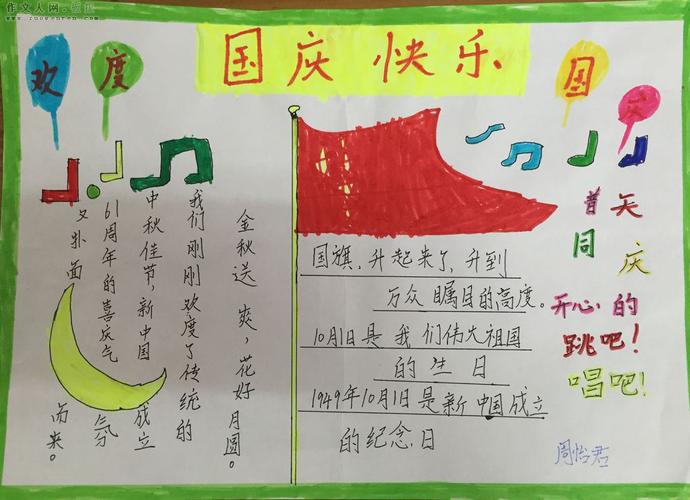 作文人网
欢度
国庆快乐
国庆
金秋送爽，花好月圆。
我们刚刚欢度了传统的
中秋佳节，新中国成立
61周年的喜庆气氛
又扑面而来。
国旗，升起来了，升到
万众瞩目的高度。
10月1日是我们伟大祖国
的生日
1949年10月1日是新中国成立
的纪念日
普天
同庆
开心的
跳吧！
唱吧！
周怡君